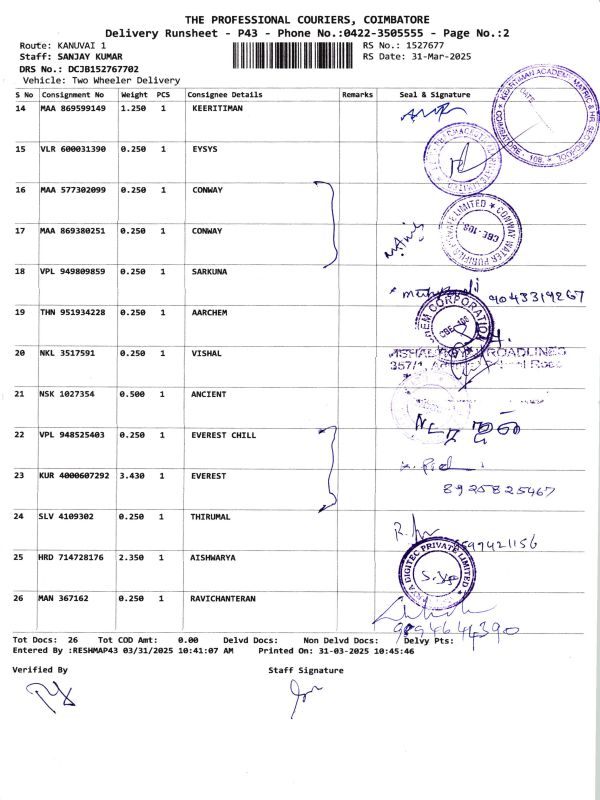 THE PROFESSIONAL COURIERS, COIMBATORE
Delivery Runsheet - P43 - Phone No.:0422-3505555 - Page No.:2
Route: KANUVAI 1
RS No.: 1527677
Staff: SANJAY KUMAR
RS Date: 31-Mar-2025
DRS No.: DCJB152767702
Vehicle: Two Wheeler Delivery
S No Consignment No Weight PCS Consignee Details Remarks Seal & Signature
14 MAA 869599149 1.250 1 KEERITIMAN
15 VLR 600031390 0.250 1 EYSYS
16 MAA 577302099 0.250 1 CONWAY
17 MAA 869380251 0.250 1 CONWAY
CONWAY WATER
CBE-108
18 VPL 949809859 0.250 1 SARKUNA
9043319267
19 THN 951934228 0.250 1 AARCHEM
CORPORATION
CBE-108
20 NKL 3517591 0.250 1 VISHAL
ROADLINES
357/1,
21 NSK 1027354 0.500 1 ANCIENT
22 VPL 948525403 0.250 1 EVEREST CHILL
23 KUR 4000607292 3.430 1 EVEREST
8925825467
24 SLV 4109302 0.250 1 THIRUMAL
25 HRD 714728176 2.350 1 AISHWARYA
DIGITEC PRIVATE LIMITED
26 MAN 367162 0.250 1 RAVICHANTERAN
9894644390
Tot Docs: 26 Tot COD Amt: 0.00 Delvd Docs: Non Delvd Docs: Delvy Pts:
Entered By :RESHMAP43 03/31/2025 10:41:07 AM Printed On: 31-03-2025 10:45:46
Verified By Staff Signature